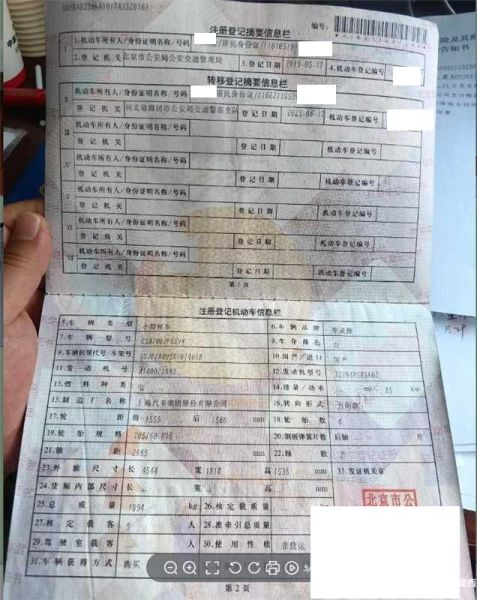 注册登记摘要信息栏
编号:
1.机动车所有人/身份证明名称/号码 /居民身份证/
2.登记机关 北京市公安局公安交通管理局 3.登记日期 2019-05-17 4.机动车登记编号
转移登记摘要信息栏
机动车所有人/身份证明名称/号码 /居民身份证/
登记机关 河北省廊坊市公安局交通警察支队 登记日期 机动车登记编号
III 机动车所有人/身份证明名称/号码
登记机关 登记日期 机动车登记编号
IV 机动车所有人/身份证明名称/号码
登记机关 登记日期 机动车登记编号
V 机动车所有人/身份证明名称/号码
登记机关 登记日期 机动车登记编号
VI 机动车所有人/身份证明名称/号码
登记机关 登记日期 机动车登记编号
VII 机动车所有人/身份证明名称/号码
登记机关 登记日期 机动车登记编号
第1页
注册登记机动车信息栏
5.车辆类型 小型轿车 6.车辆品牌 荣威牌
7.车辆型号 8.车身颜色 白
9.车辆识别代号/车架号 10.国产/进口 国产
11.发动机号 12.发动机型号
13.燃料种类 电 14.排量/功率 ml/ 85 kw
15.制造厂名称 上海汽车集团股份有限公司 16.转向形式 方向盘
17.轮距 前 1559 后 1566 mm 18.轮胎数 4
19.轮胎规格 20.钢板弹簧片数 后轴 片
21.轴距 2665 mm 22.轴数 2
23.外廓尺寸 长 4544 宽 1818 高 1536 mm 33.发证机关章
24.货厢内部尺寸 长 宽 高 mm
25.总质量 1994 kg 26.核定载质量
27.核定载客 5 人 28.准牵引总质量
29.驾驶室载客 人 30.使用性质 非营运
31.车辆获得方式 购买
北京市公
第2页